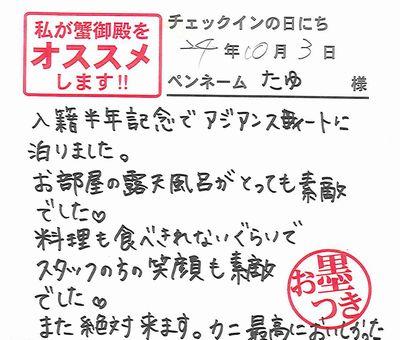 私が蟹御殿を
オススメ
します!!
チェックインの日にち
24年10月3日
ペンネーム たゆ 様
入籍半年記念でアジアンスイートに
泊りました。
お部屋の露天風呂がとっても素敵
でした♡
料理も食べきれないぐらいで
スタッフの方の笑顔も素敵
でした♡
また絶対来ます。カニ最高においしかった
お墨つき